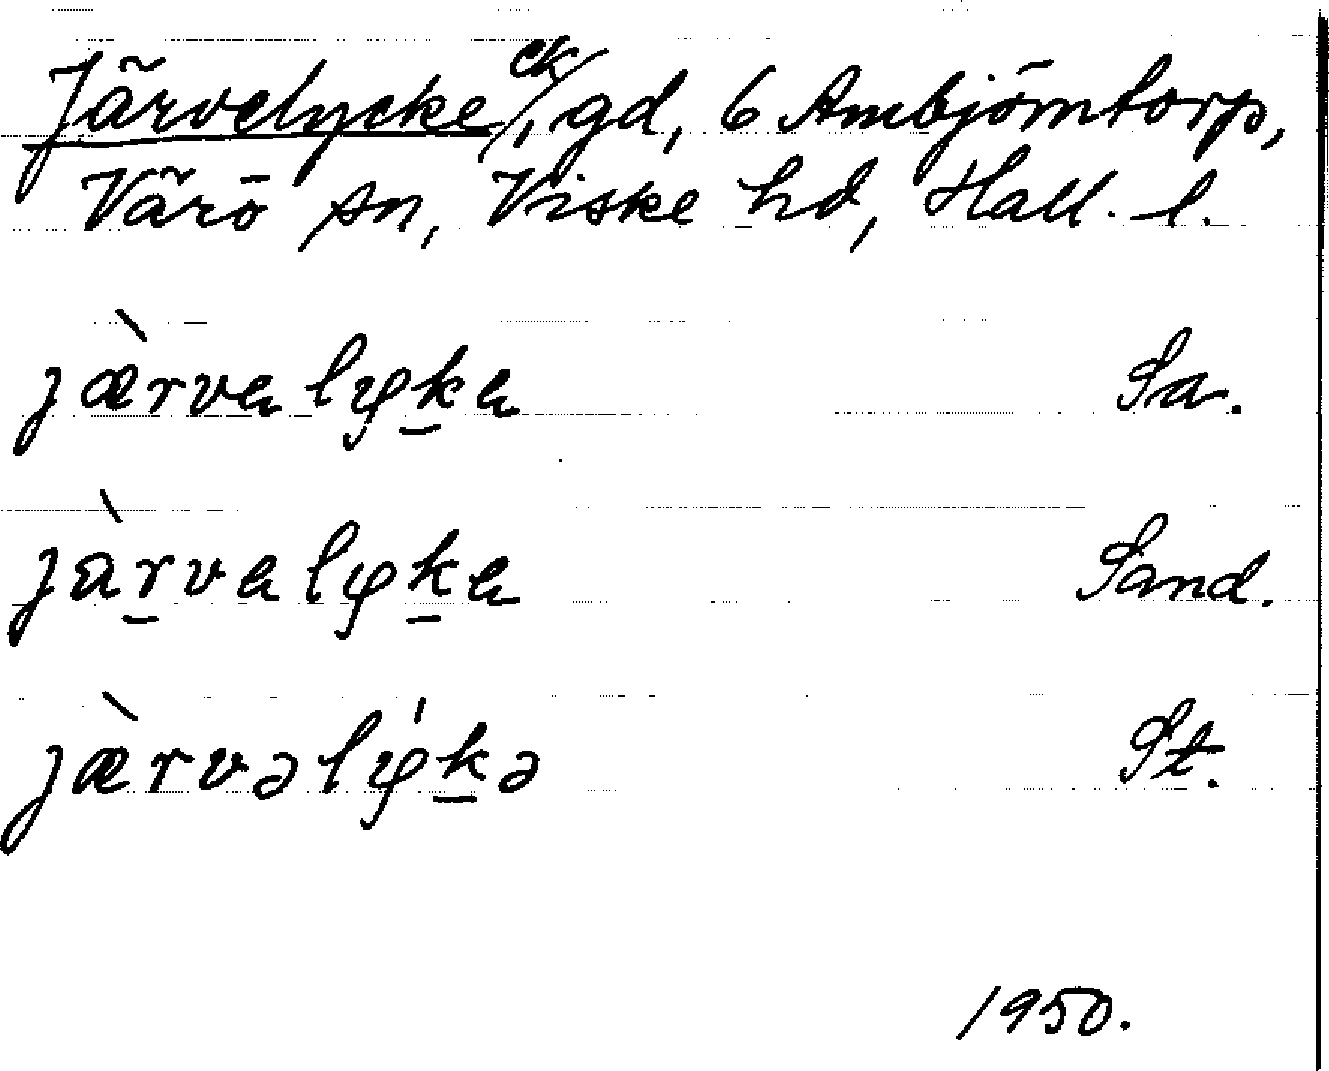 Järvelycke /ek, gd, 6 Ambjörntorp,
Värö sn, Viske hd, Hall. l.
jæ̀rvalyḵa Sa.
jàṟvalyḵa Sand.
jæ̀rvəlýḵə St.
1950.